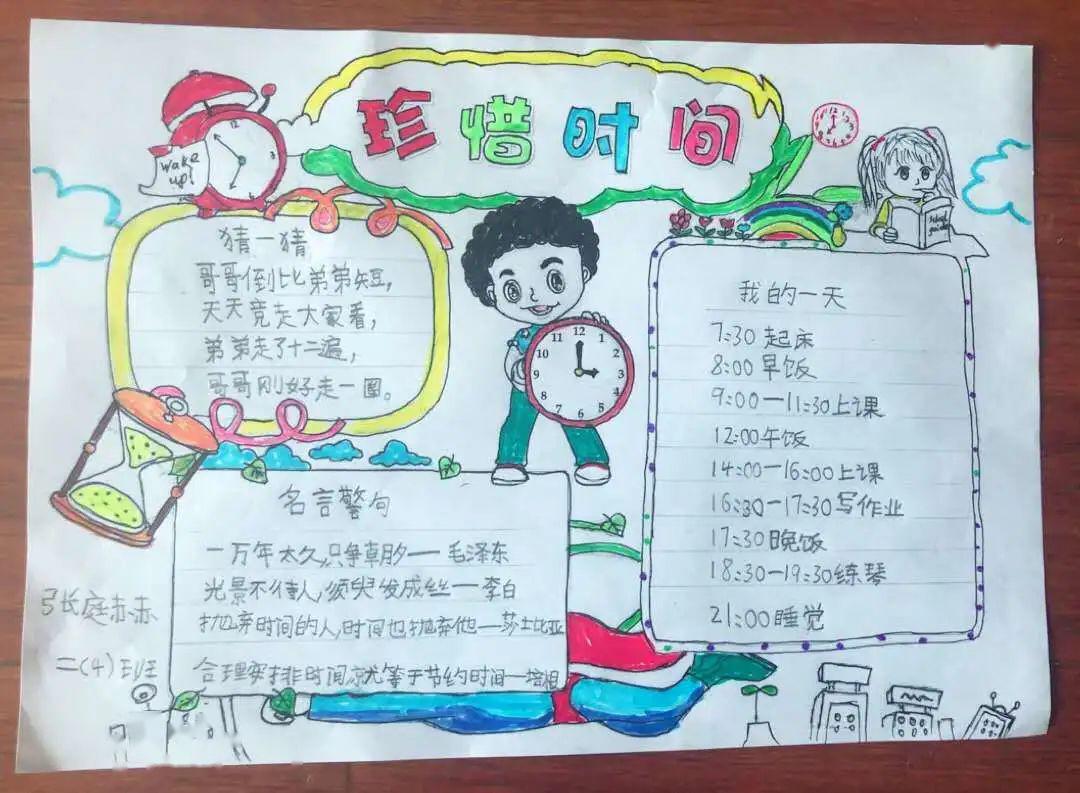 珍惜时间
Wake
up!
猜一猜
哥哥倒比弟弟矮,
天天竞走大家看,
弟弟走了十二遍,
哥哥刚好走一圈。
12
1
2
3
4
5
6
7
8
9
10
11
我的一天
7:30 起床
8:00 早饭
9:00—11:30 上课
12:00 午饭
14:00—16:00 上课
16:30—17:30 写作业
17:30 晚饭
18:30—19:30 练琴
21:00 睡觉
名言警句
一万年太久,只争朝夕——毛泽东
光景不待人,须臾发成丝——李白
抛弃时间的人,时间也抛弃他——莎士比亚
合理安排时间就等于节约时间——培根
张庭赫
二(4)班